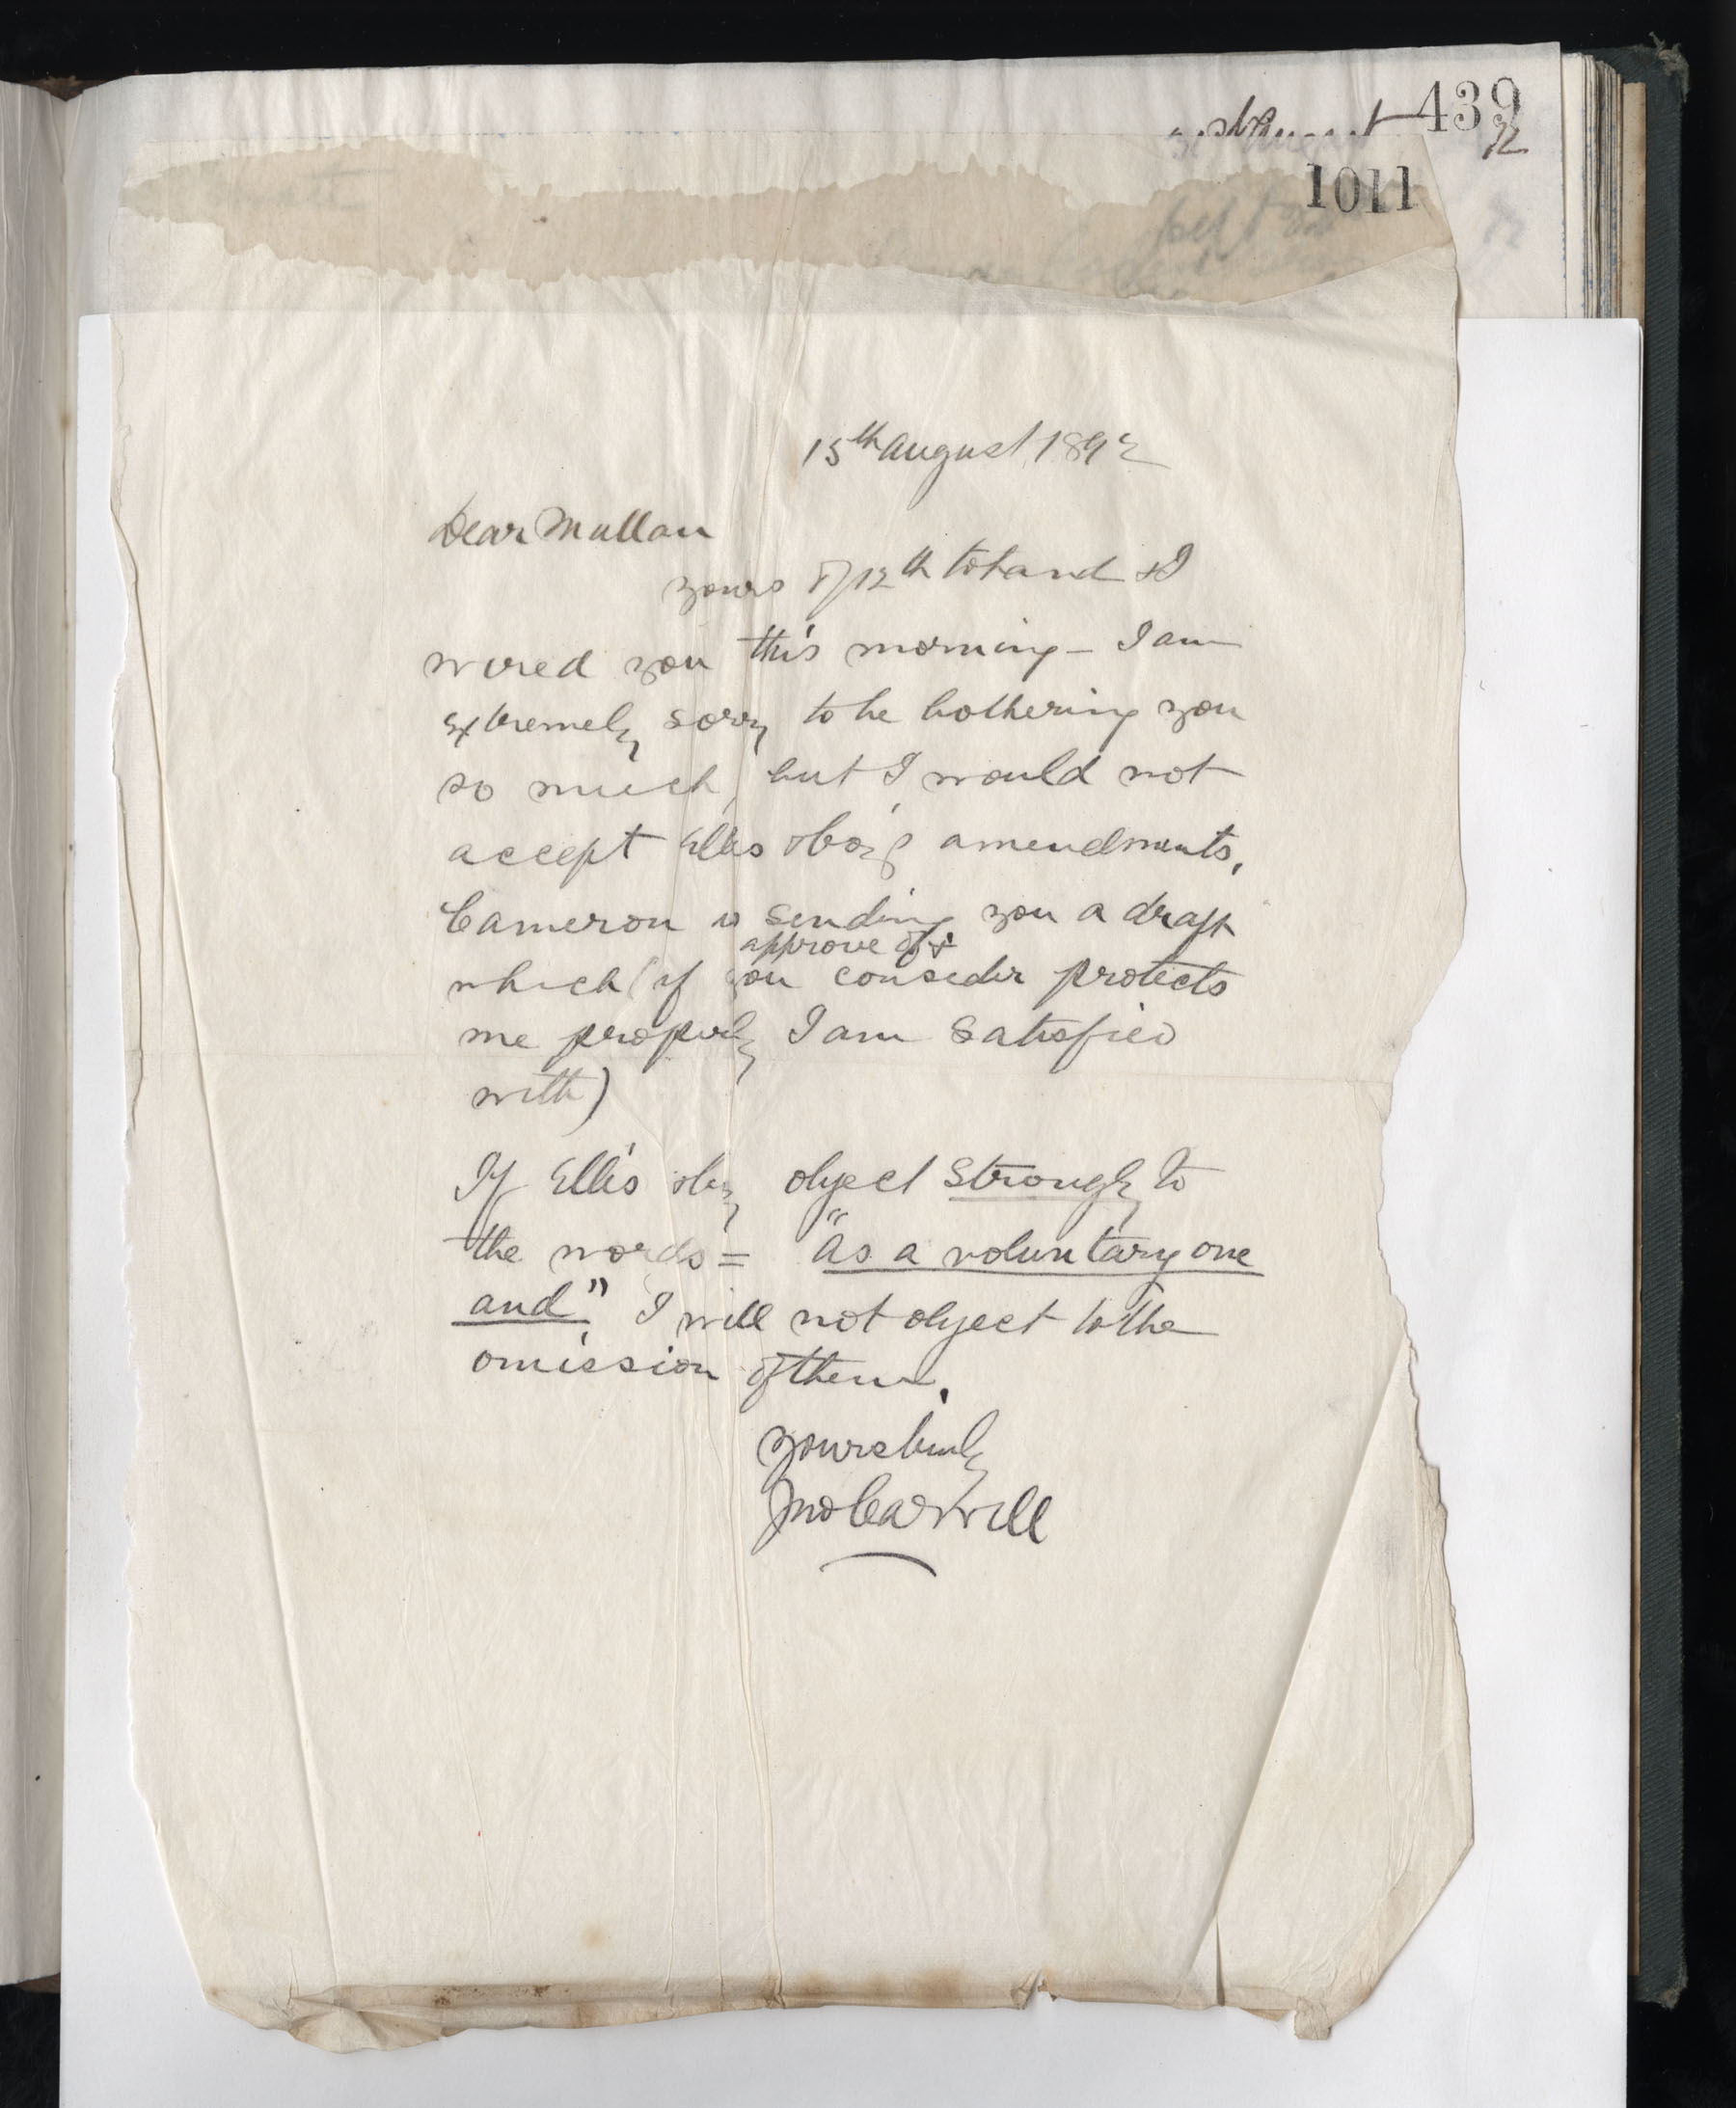 439
1011
15th August 1892
Dear Mullan
yours of 12th to hand & I
wired you this morning – I am
extremely sorry to be bothering you
so much, but I would not
accept Ellis & Co's amendments.
Cameron is sending you a draft
approve of &
which (if you consider protects
me properly I am satisfied
with)
If Ellis & Coy object strongly to
the words = "as a voluntary one
and" I will not object to the
omission of them.
yours truly
Jno Carwill